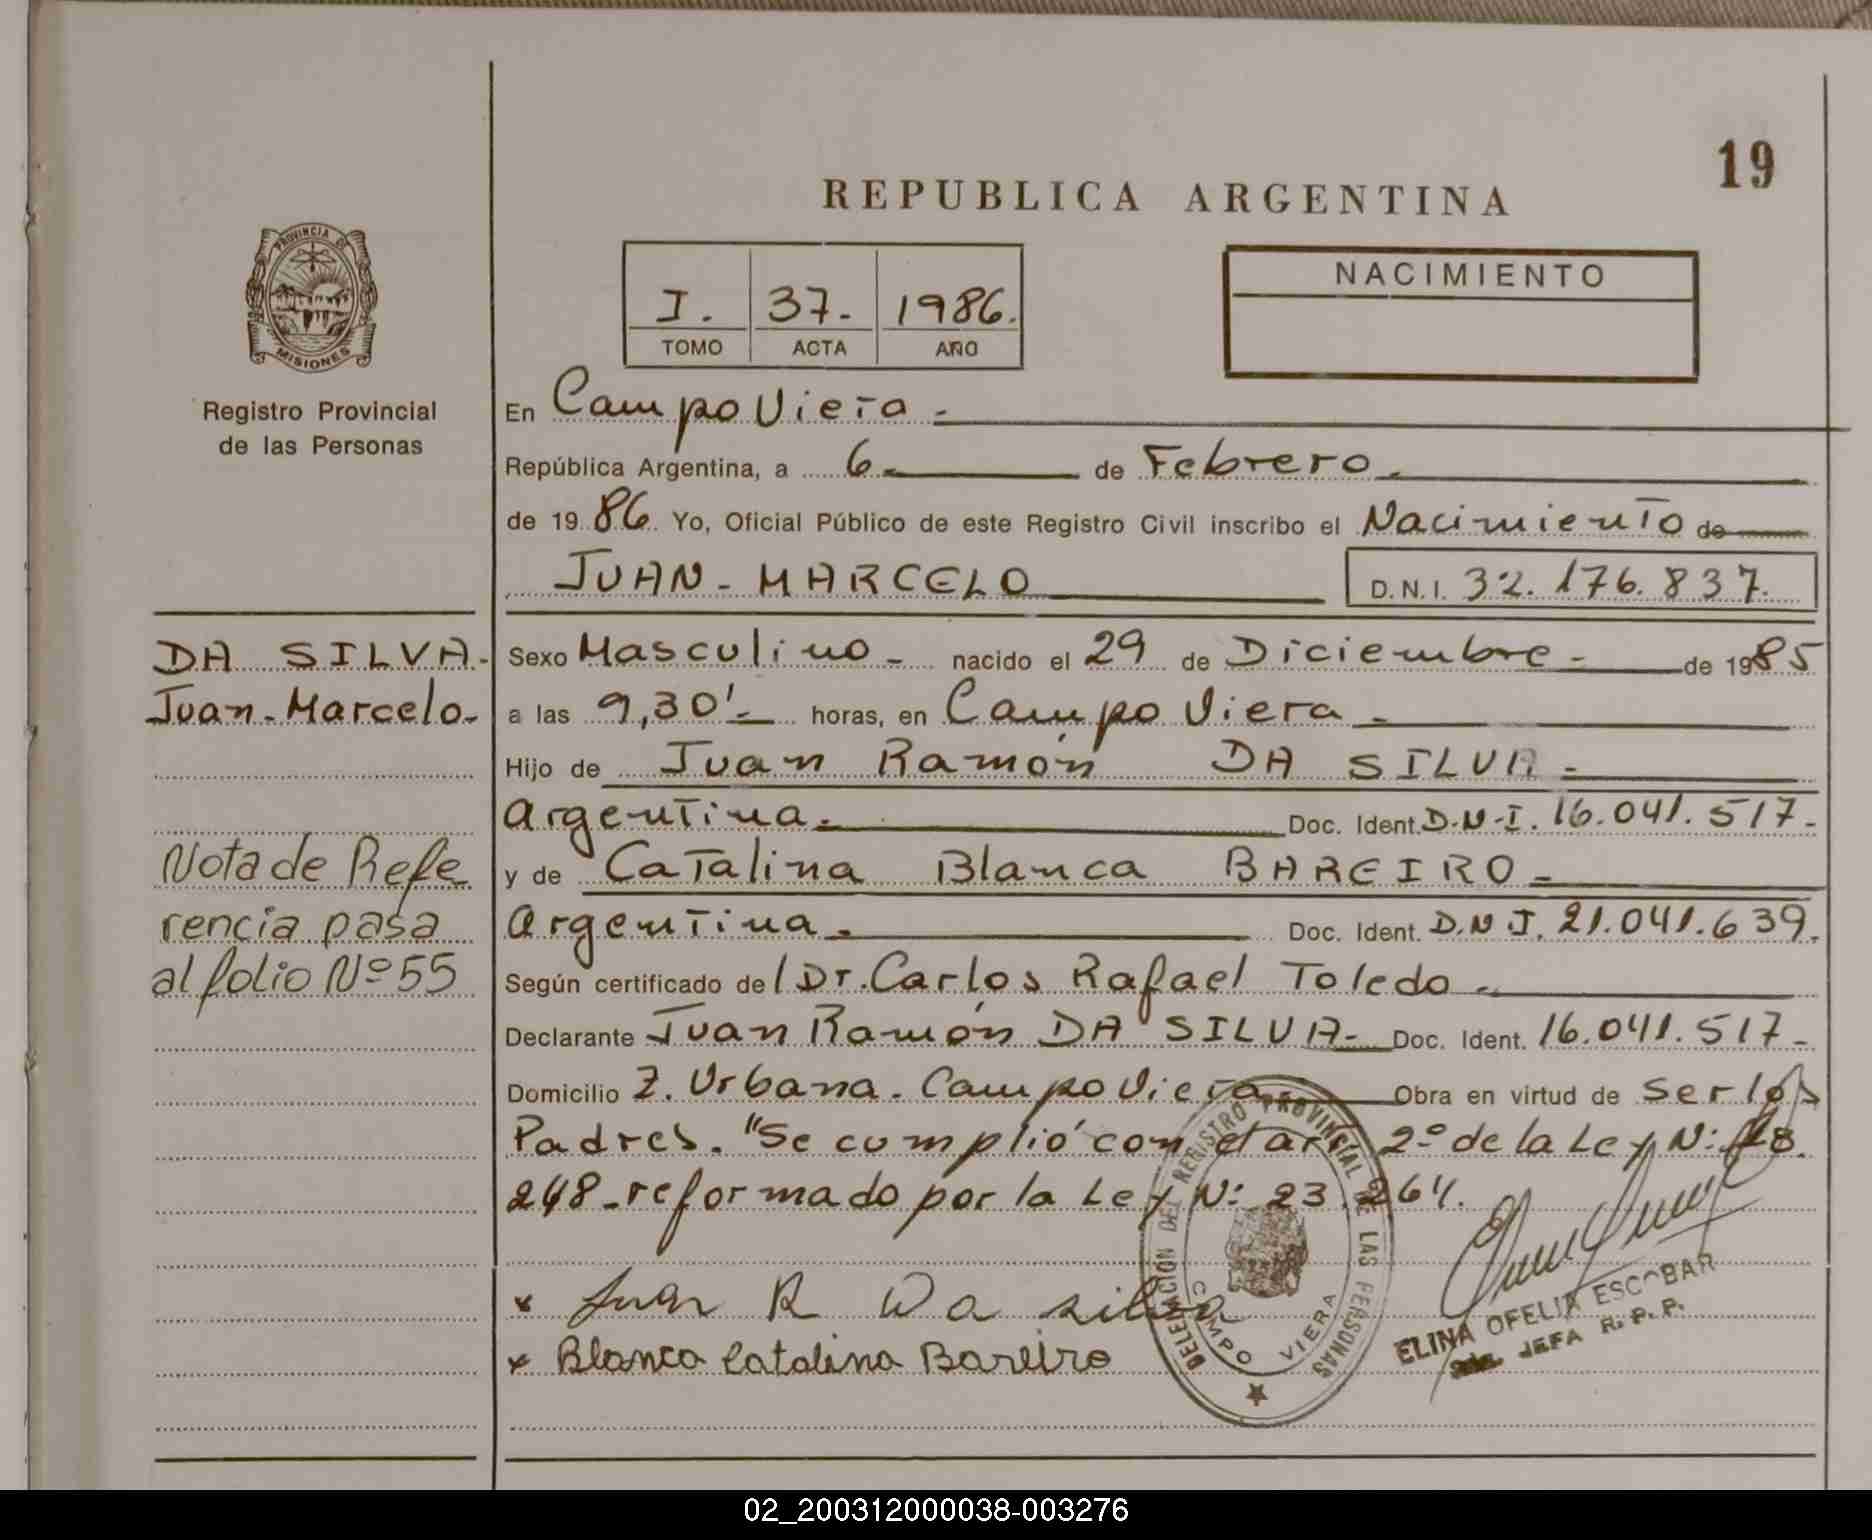 19
REPUBLICA ARGENTINA
PROVINCIA DE
MISIONES
Registro Provincial
de las Personas
I. 37. 1986.
TOMO ACTA AÑO
NACIMIENTO
En Campo Viera.
República Argentina, a 6 de Febrero.
de 1986 Yo, Oficial Público de este Registro Civil inscribo el Nacimiento de
JUAN - MARCELO D.N.I. 32.176.837.
DA SILVA.
Juan - Marcelo.
Sexo Masculino - nacido el 29 de Diciembre - de 1985
a las 9,30'- horas, en Campo Viera -
Hijo de Juan Ramón DA SILVA -
Argentina. Doc. Ident. D.N.I. 16.041.517.
y de Catalina Blanca BAREIRO -
Argentina. Doc. Ident. D.N.I. 21.041.639.
Nota de Refe
rencia pasa
al folio Nº 55
Según certificado del Dr. Carlos Rafael Toledo.
Declarante Juan Ramón DA SILVA - Doc. Ident. 16.041.517-
Domicilio Z. Urbana. Campo Viera Obra en virtud de ser los
Padres. "Se cumplió con el art 2º de la Ley N: 18.
248 - reformado por la Ley N: 23.264.
x Juan R Da silva
x Blanca Catalina Bareiro
DELEGACIÓN DEL REGISTRO PROVINCIAL DE LAS PERSONAS
CAMPO VIERA
ELINA OFELIA ESCOBAR
JEFA R. P. P.
02_200312000038-003276